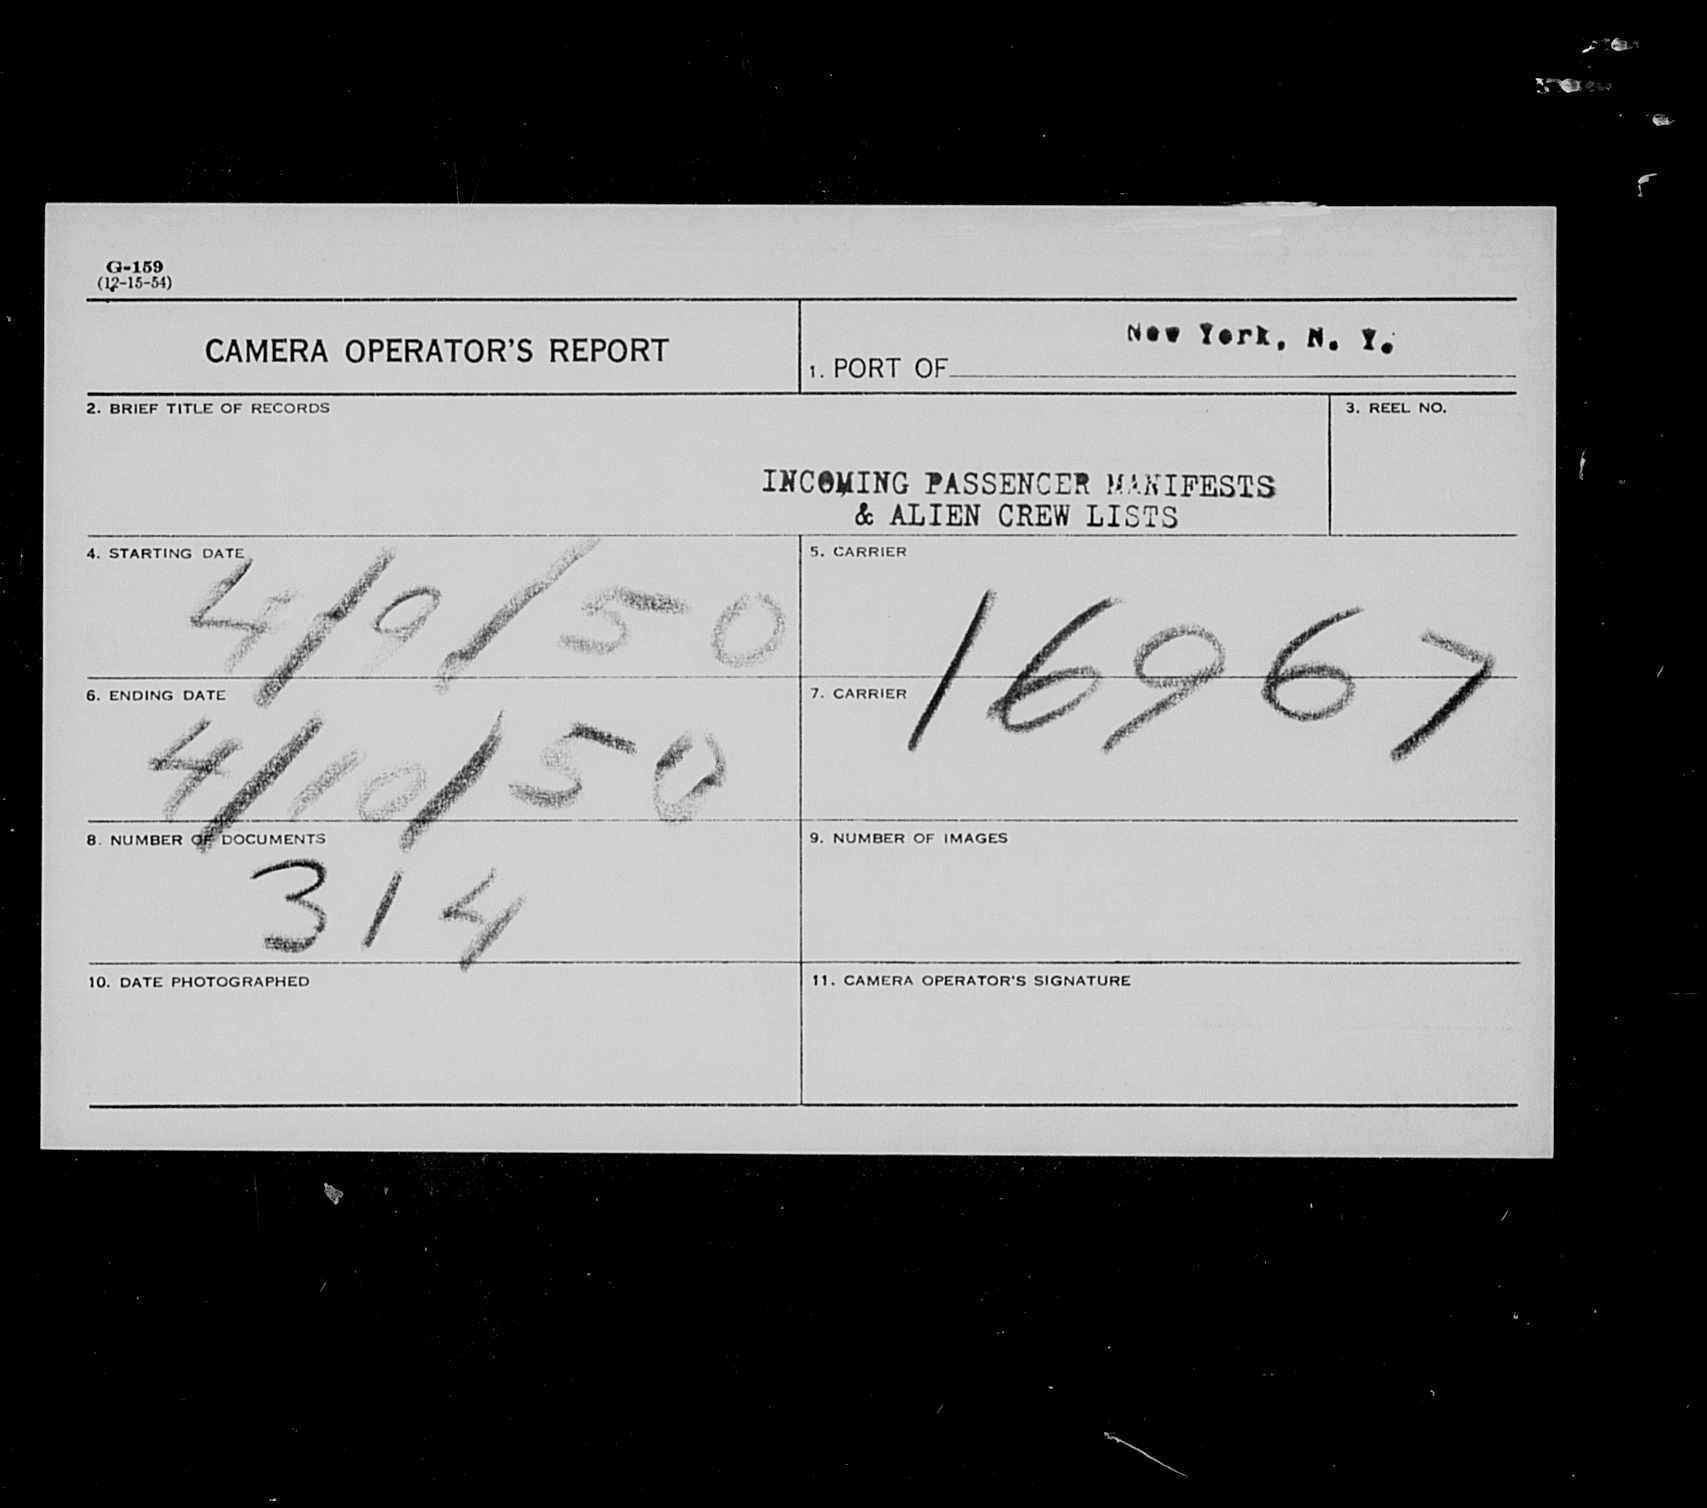 G-159
(12-15-54)
CAMERA OPERATOR'S REPORT
1. PORT OF New York, N. Y.
2. BRIEF TITLE OF RECORDS
3. REEL NO.
INCOMING PASSENGER MANIFESTS
& ALIEN CREW LISTS
4. STARTING DATE
4/9/50
5. CARRIER
16967
6. ENDING DATE
4/10/50
7. CARRIER
8. NUMBER OF DOCUMENTS
314
9. NUMBER OF IMAGES
10. DATE PHOTOGRAPHED
11. CAMERA OPERATOR'S SIGNATURE